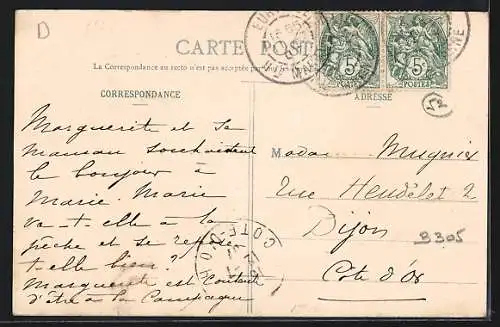 D
CARTE POSTALE
La Correspondance au recto n'est pas acceptée
CORRESPONDANCE
ADRESSE
5c
POSTES
5c
POSTES
Marguerite et sa
maman souhaitent
le bonjour à
Marie. Marie
va-t-elle à la
pêche et se repose
-t-elle bien?
Marguerite est contente
d'être à la Campagne
Madame Mugnix
rue Heudelot 2
Dijon
Côte d'Or
B305
COTE-D'OR